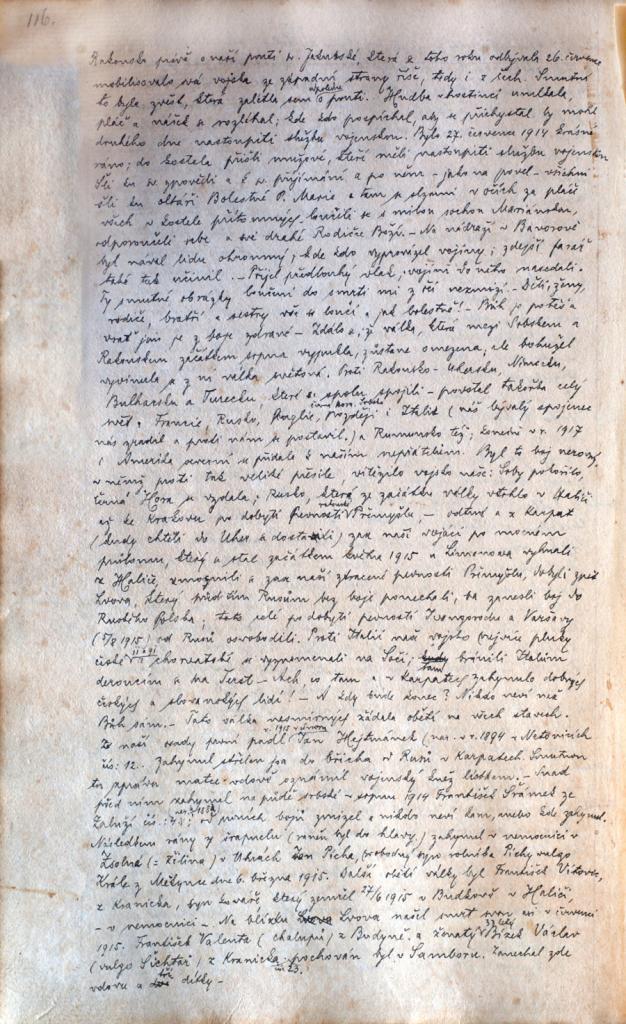 116.
Rakousko právě o naší pouti sv. Jakubské, která se toho roku odbývala 26. července
mobilisovalo svá vojska ze západní strany říše, tedy i z Čech. Smutná
to byla zvěst, která zalétla sem o pouti. Hudba v hostinci umlkala,
pláč a nářek se rozléhal; kde kdo pospíchal, aby se přichystal by mohl
druhého dne nastoupiti službu vojenskou. Bylo 27. července 1914 krásné
ráno; do kostela přišli mužové, kteří měli nastoupiti službu vojenskou
Šli ku sv. zpovědi a k sv. přijímání a po něm - jako na povel - všichni
šli ku oltáři Bolestné P. Marie a tam se slzami v očích za pláče
všech v kostele přítomných loučili se s milou sochou Mariánskou,
odporoučeli sebe a své drahé Rodičce Boží. - Na nádraží v Bavorově
byl nával lidu ohromný; kde kdo vyprovázel vojíny; zdejší farář
také tak učinil. - Přijel předlouhý vlak, vojíni do něho nasedali.
Ty smutné obrázky loučení do smrti mi z očí nezmizí. - Děti, ženy,
rodiče, bratři a sestry vše se loučí a jak bolestně! - Bůh je potěš a
vrať jim je z boje zdravé - Zdálo se, že válka, která mezi Srbskem a
Rakouskem začátkem srpna vypukla, zůstane omezena, ale bohužel
vyvinula se z ní válka světová. Proti Rakousko-Uhersku, Německu,
Bulharsku a Turecku, které se spolu spojili - povstal takořka celý
svět. Francie, Rusko, Anglie, Později i Italie (náš bývalý spojenec
nás zradil a proti nám se postavil.) a Rumunsko též; konečně v r. 1917
i Amerika severní se přidala k našim nepřátelům. Byl to boj nerovný,
v němž proti tak veliké přesile, vítězilo vojsko naše: Srby pokořilo,
černá Hora se vzdala; Rusko, které ze začátku války vtrhlo v Haliči
až ke Krakovu po dobytí pevnosti Přemyšlu, - odtud a z Karpat
(kudy chtěli do Uher se dostati) zase naši vojáci po mocném
průlomu, který se stal začátkem května 1915 u Limanova vyhnali
z Haliče, zmocnili se zase naší ztracené pevnosti Přemyšlu, dobyli zpět
Lvova, který předtím Rusům bez boje ponechali, ba zanesli boj do
Ruského Polska; toto celé po dobytí pevností Ivangorodu a Varšavy
(5/8 1915) od Rusů osvobodili. Proti Italii naše vojsko (nejvíce pluky
české a chorvatské se vyznamenali na Soči; tam bránili Italům
deroucím se na Terst. - Ach, co tam a v Karpatech zahynulo dobrých
českých a slovanských lidí! - A kdy bude konec? Nikdo neví než
Bůh sám. - Tato válka nesmírných žádala obětí na všech stavech.
Z naší osady první padl Jan Hejtmánek (nar. v r. 1894 v Netonicích
čís: 12. Zahynul střelen jsa do břicha od Rusů v Karpatech. Smutnou
tu zprávu matce-vdově oznámil vojenský kněz Kobken. - Snad
před ním zahynul na půdě srbské - srpna 1914 František Šrámek ze
od prvních bojů zmizel a nikdo neví kam, nebo kde zahynul.
Následkem rány z šrapnelu (raněn byl do hlavy) zahynul v nemocnici v
Zsolna (= Žilina) v Uhrách Jan Pícha, svobodný syn rolníka Píchy vulgo
Krále z Měkynce dne 6. března 1915. Další obětí války byl František
z Kránička, syn kováře, který zemřel 27/6 1915 v v Haliči,
- v nemocnici - Na blízku Lvova našel smrt svou asi v červenci
1915. František Valenta (chalupář) z Budyně. a ženatý Bízek Václav
(vulgo Šichtař) z Kránička pochován byl v Samboru. Zanechal zde
vdovu a tři dítky -